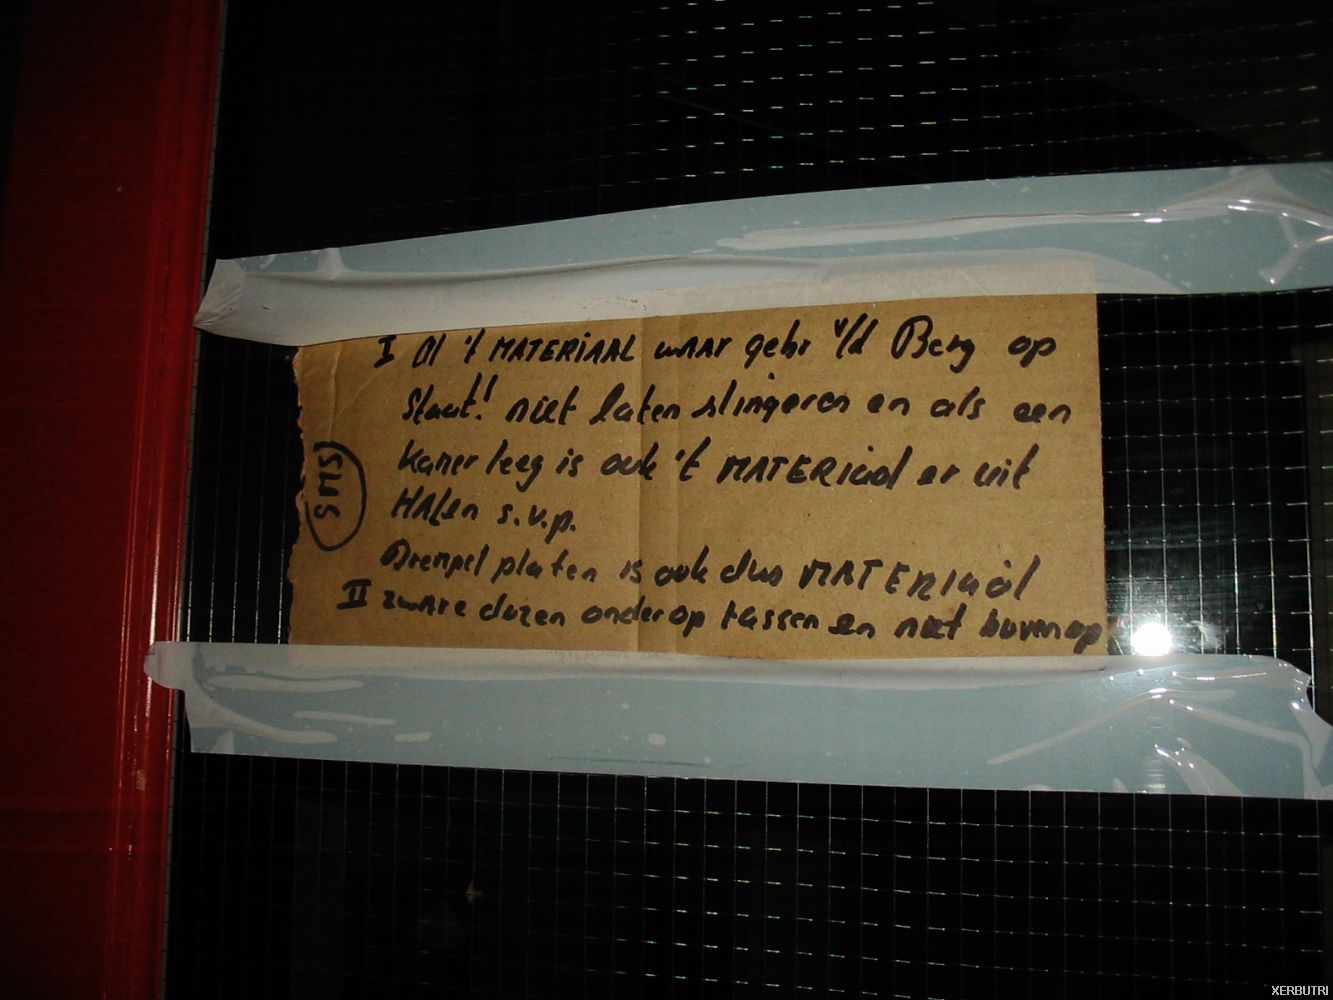 I Al 't MATERIAAL waar gebr v/d Berg op
Staat! niet laten slingeren en als een
kamer leeg is ook 't MATERiaal er uit
HALen s.v.p.
Drempel platen is ook dus MATERIaal
II zware dozen onderop tassen en niet bovenop
SMS
XERBUTRI